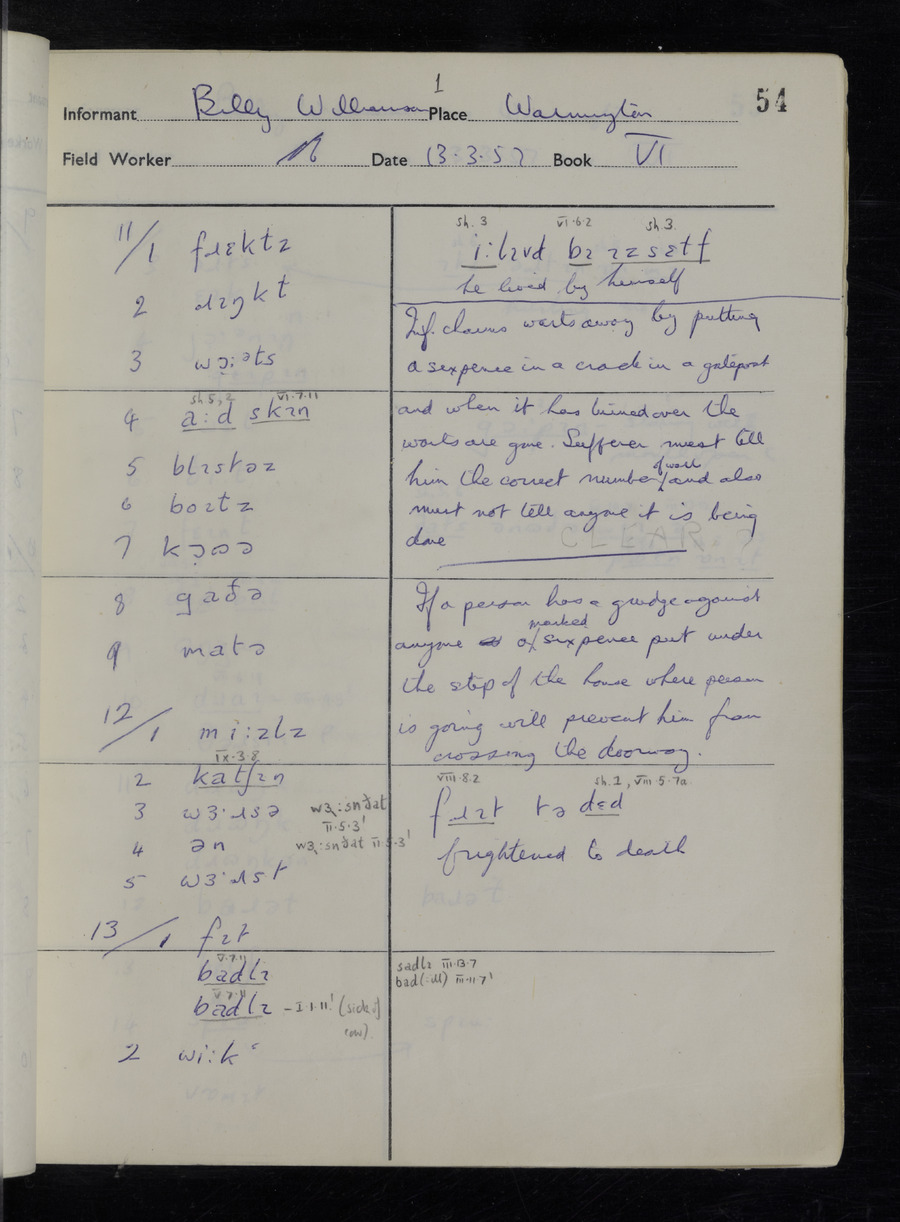 1
Informant Billy Williamson Place Warmington 54
Field Worker Date 13.3.57 Book VI
11/1 fɹɛktz
2 ɹɪŋkt
3 wɔ̣:əts
sh 5, 2 VI.7.11
4 a:d skɪn
5 blɪstəz
6 bɒɪtz
7 kɔ̣ɒə
8 gaðə
9 matə
12/1 mi:zlz
IX.3.8
2 katʃɪn
3 wɜ·ɹsə wɜ̣:snðat
II.5.3'
4 ən wɜ̣:snðat II.5.3'
5 wɜ·ɹst
13/1 fɪt
V.7.11
badlɪ
V.7.11
badlɪ - I.1.11' (side of
cow).
2 wi:k
sh. 3 VI.6.2 sh.3.
i:lɪvd bɪ ɪzsɛtf
he lived by himself
Inf. charms warts away by putting
a sixpence in a crack in a gatepost
and when it has turned over the
warts are gone. Sufferer must tell
him the correct number of warts and also
must not tell anyone it is being
done CLEAR ?
If a person has a grudge against
anyone a marked sixpence put under
the step of the house where person
is going will prevent him from
crossing the doorway.
VIII.8.2 sh.1, VIII.5.7a
fɹɪt tə dɛd
frightened to death
sadlɪ III.13.7
bad(:ill) III.11.7'